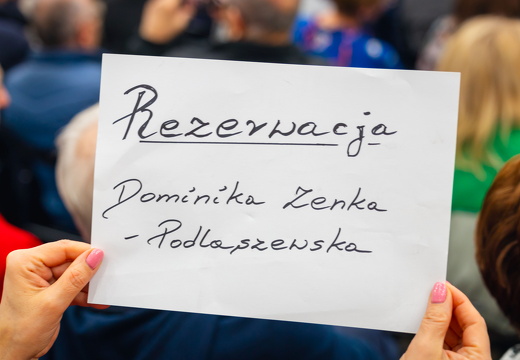 Rezerwacja
Dominika Zenka
- Podlaszewska